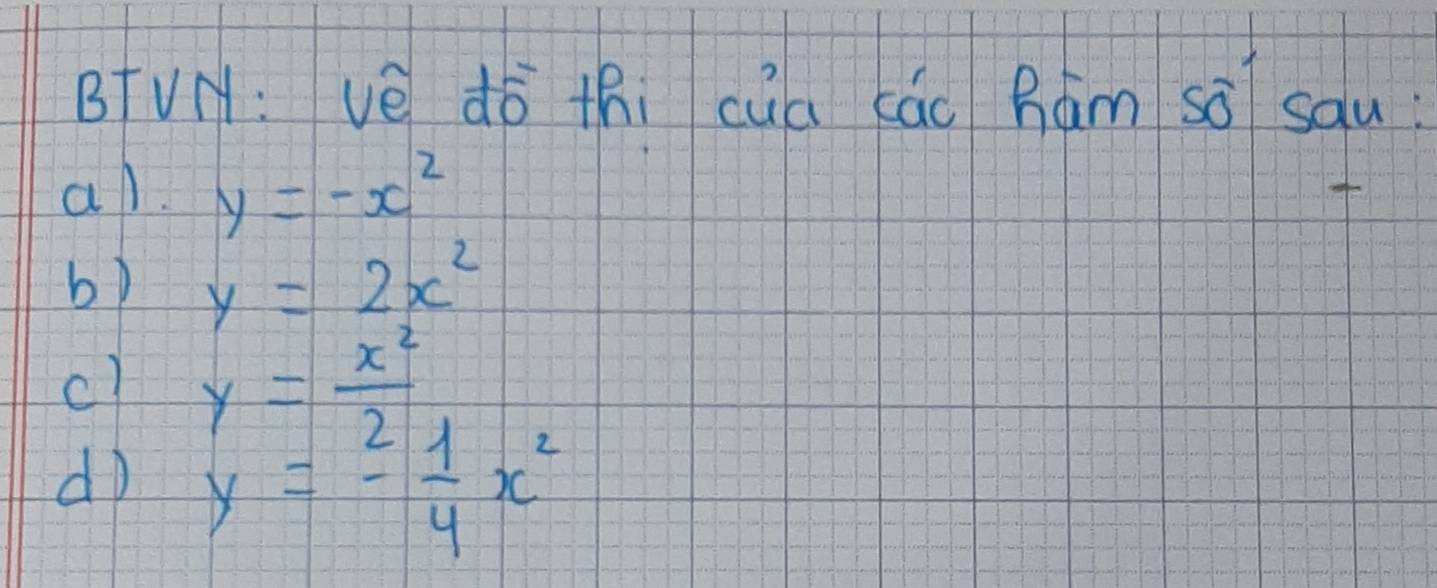 BTVN: Vẽ đồ thị của các hàm số sau:
a). y = -x²
b) y = 2x²
c) y = x²/2
d) y = - 1/4 x²